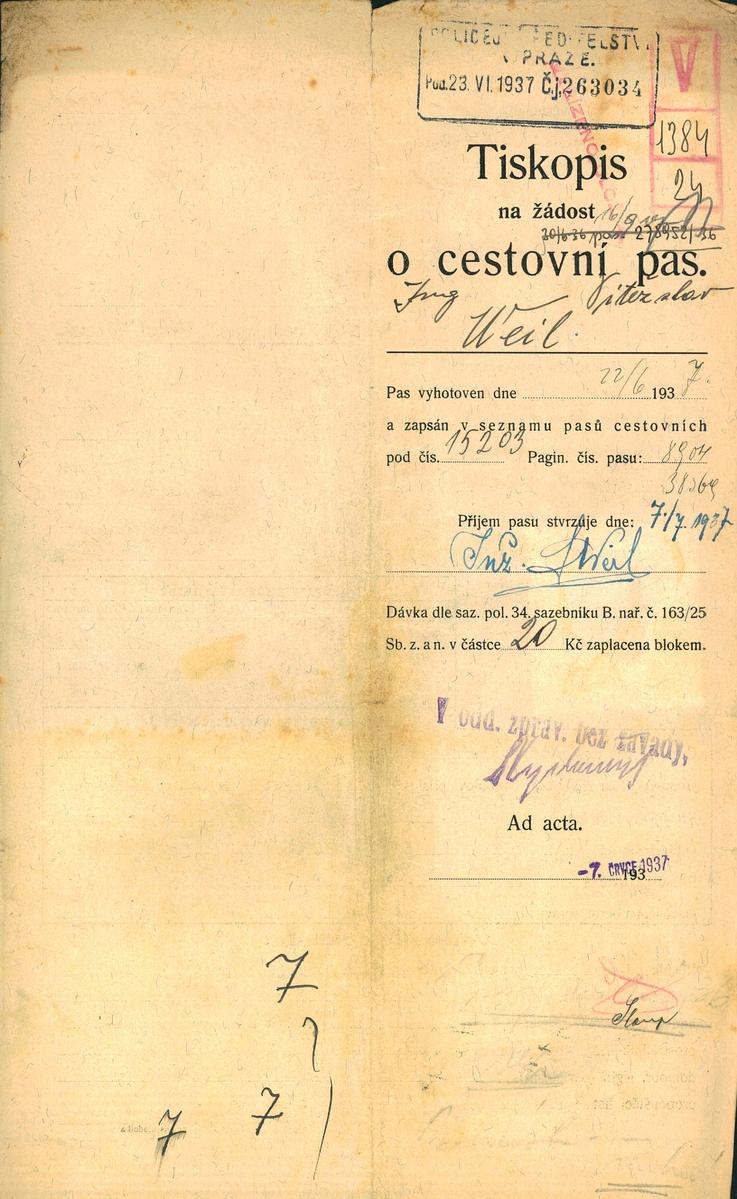 POLICEJ ŘEDITELSTV
V PRAZE.
Pod. 23. VI. 1937 Č.j. 263034
V
1384
24
Tiskopis
na žádost
16/9
30/6 36 pas 278952/36
o cestovní pas.
Ing Vítězslav
Weil.
Pas vyhotoven dne 22/6 1937.
a zapsán v seznamu pasů cestovních
pod čís. 15203 Pagin. čís. pasu: 8904
Příjem pasu stvrzuje dne: 7./7. 1937
Inž. Weil
Dávka dle saz. pol. 34. sazebníku B. nař. č. 163/25
Sb. z. a n. v částce 20 Kč zaplacena blokem.
V odd. zpráv. bez závady,
Ad acta.
193
-7. ČRVCE 1937
7
7
7